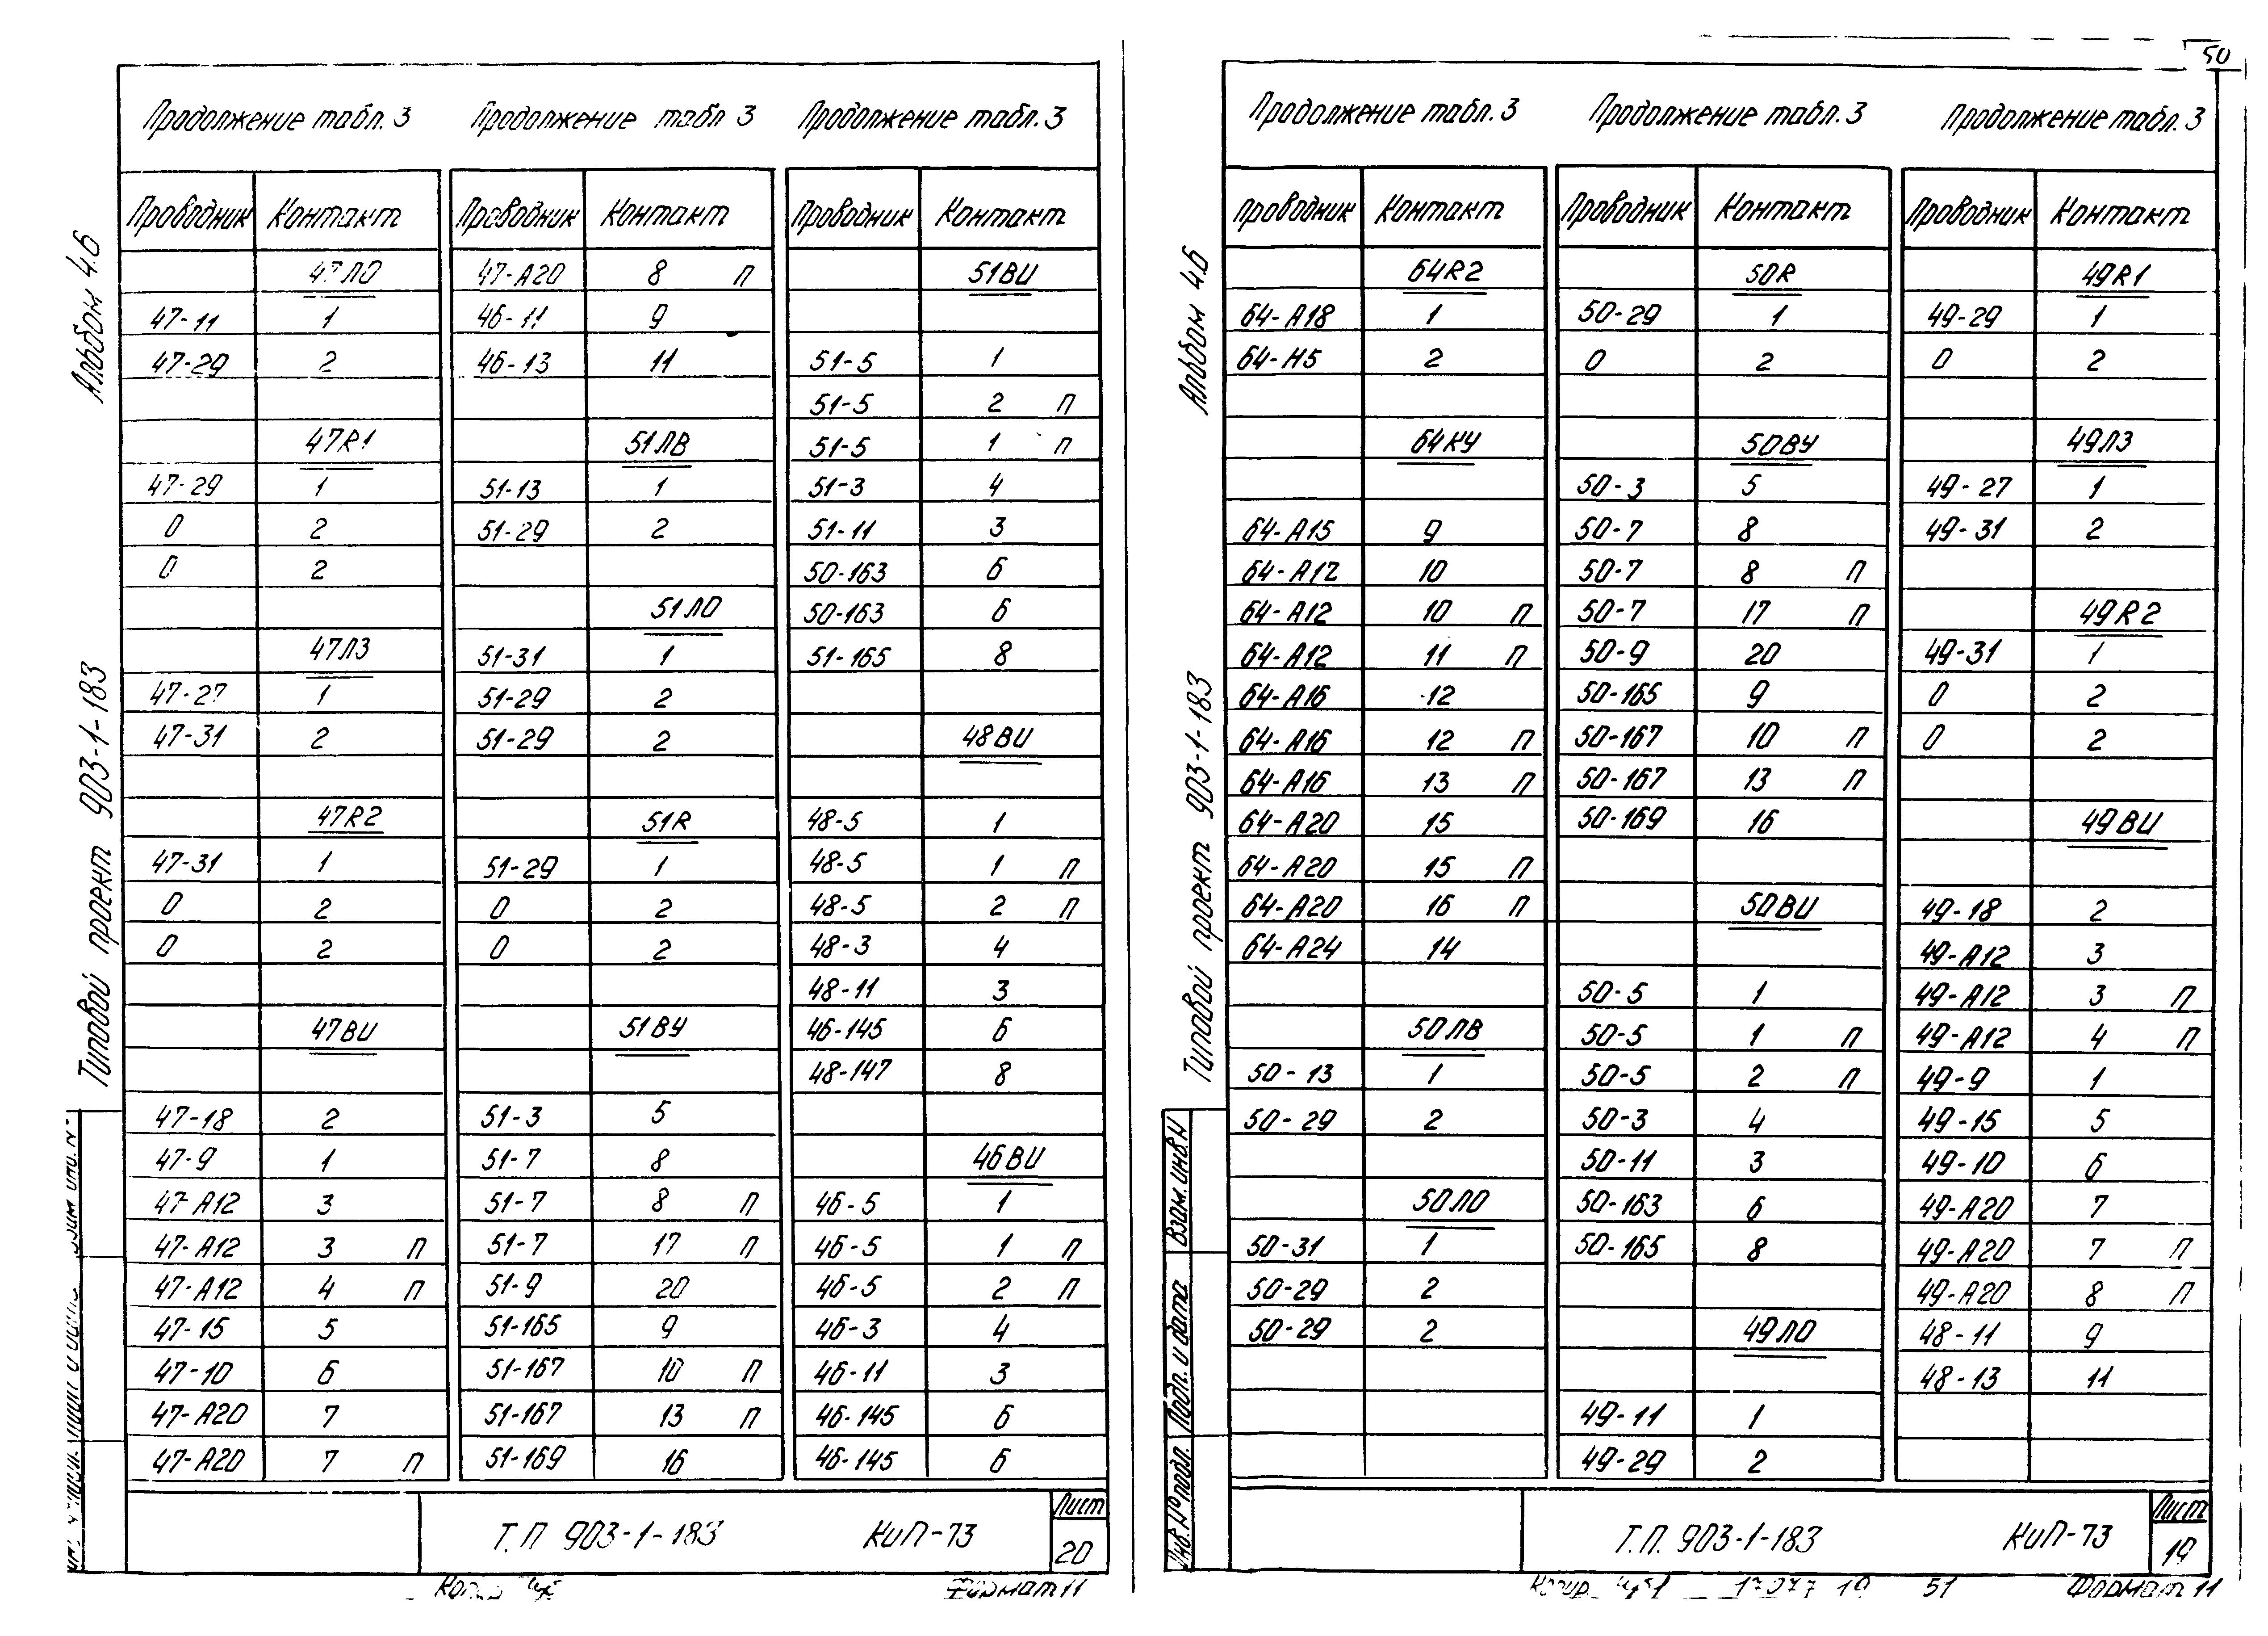 50
Альбом 4.6
Типовой проект 903-1-183
Продолжение табл. 3
Проводник Контакт
47ЛО
47-11 1
47-29 2
47R1
47-29 1
0 2
0 2
47ЛЗ
47-27 1
47-31 2
47R2
47-31 1
0 2
0 2
47ВИ
47-18 2
47-9 1
47-А12 3
47-А12 3 П
47-А12 4 П
47-15 5
47-10 6
47-А20 7
47-А20 7 П
Продолжение табл 3
Проводник Контакт
47-А20 8 П
46-11 9
46-13 11
51ЛВ
51-13 1
51-29 2
51ЛО
51-31 1
51-29 2
51-29 2
51R
51-29 1
0 2
0 2
51ВУ
51-3 5
51-7 8
51-7 8 П
51-7 17 П
51-9 20
51-165 9
51-167 10 П
51-167 13 П
51-169 16
Продолжение табл. 3
Проводник Контакт
51ВИ
51-5 1
51-5 2 П
51-5 1 П
51-3 4
51-11 3
50-163 6
50-163 6
51-165 8
48ВИ
48-5 1
48-5 1 П
48-5 2 П
48-3 4
48-11 3
46-145 6
48-147 8
46ВИ
46-5 1
46-5 1 П
46-5 2 П
46-3 4
46-11 3
46-145 6
46-145 6
Т.П 903-1-183 КиП-73
Лист
20
Формат 11
Альбом 4.6
Типовой проект 903-1-183
Взам. инв.N
Подп. и дата
Инв.Nо подл.
Продолжение табл. 3
Проводник Контакт
64R2
64-А18 1
64-Н5 2
64КУ
64-А15 9
64-А12 10
64-А12 10 П
64-А12 11 П
64-А16 12
64-А16 12 П
64-А16 13 П
64-А20 15
64-А20 15 П
64-А20 16 П
64-А24 14
50ЛВ
50-13 1
50-29 2
50ЛО
50-31 1
50-29 2
50-29 2
Продолжение табл. 3
Проводник Контакт
50R
50-29 1
0 2
50ВУ
50-3 5
50-7 8
50-7 8 П
50-7 17 П
50-9 20
50-165 9
50-167 10 П
50-167 13 П
50-169 16
50ВИ
50-5 1
50-5 1 П
50-5 2 П
50-3 4
50-11 3
50-163 6
50-165 8
49ЛО
49-11 1
49-29 2
Продолжение табл. 3
Проводник Контакт
49R1
49-29 1
0 2
49ЛЗ
49-27 1
49-31 2
49R2
49-31 1
0 2
0 2
49ВИ
49-18 2
49-А12 3
49-А12 3 П
49-А12 4 П
49-9 1
49-15 5
49-10 6
49-А20 7
49-А20 7 П
49-А20 8 П
48-11 9
48-13 11
Т.П. 903-1-183 КиП-73
Лист
19
Копир. 19 51 Формат 11